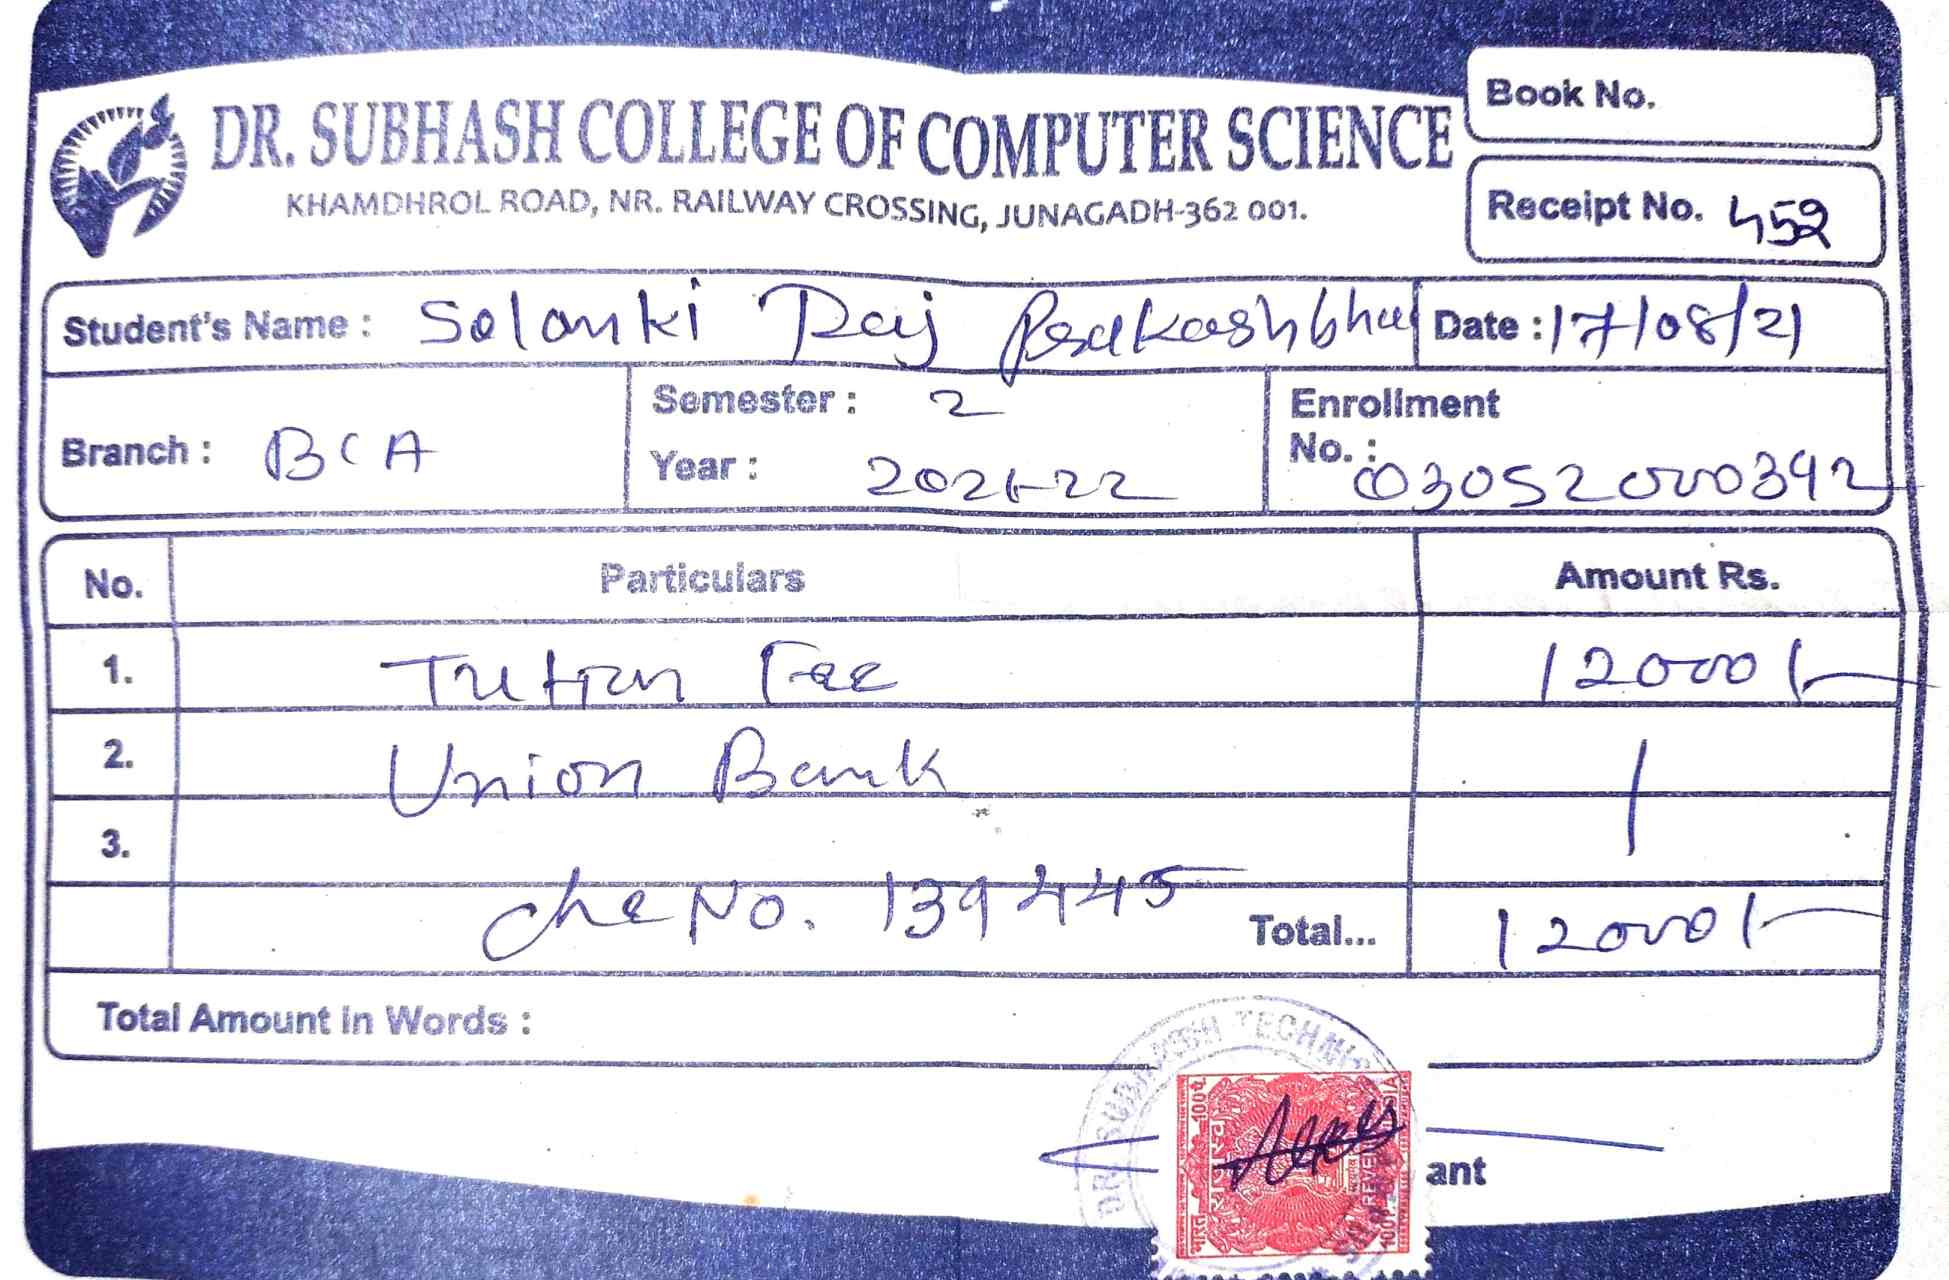 DR. SUBHASH COLLEGE OF COMPUTER SCIENCE
KHAMDHROL ROAD, NR. RAILWAY CROSSING, JUNAGADH-362 001.
Book No.
Receipt No. 452
Student's Name : Solanki Raj Prakashbhai
Date : 17/08/21
Branch : BCA
Semester : 2
Year : 2021-22
Enrollment
No. : 03052000392
No. Particulars Amount Rs.
1. Tution Fee 12000/-
2. Union Bank
3.
che No. 139445 Total... 12000/-
Total Amount in Words :
DR. SUBHASH TECHNI
भारत 100पै.
INDIA
REVENUE
100P.
ant